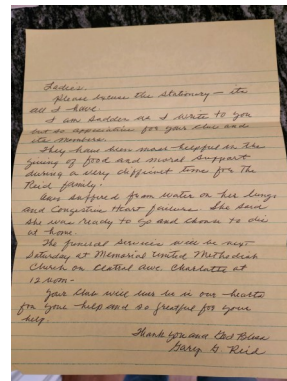 Ladies.
Please excuse the stationary — its
all I have.
I am sadden as I write to you
but so appreciative for your club and
its members.
They have been most helpful in the
giving of food and moral support
during a very difficult time for the
Reid family.
suffered from water on her lungs
and Congestive Heart failure. She said
she was ready to go and chose to die
at home.
The funeral service will be next
Saturday at Memorial United Methodist
Church on Central Ave. Charlotte at
12 noon-
Your Club will be in our hearts
for your help and so for your
help.
Thank you and God Bless
Gary G Reid